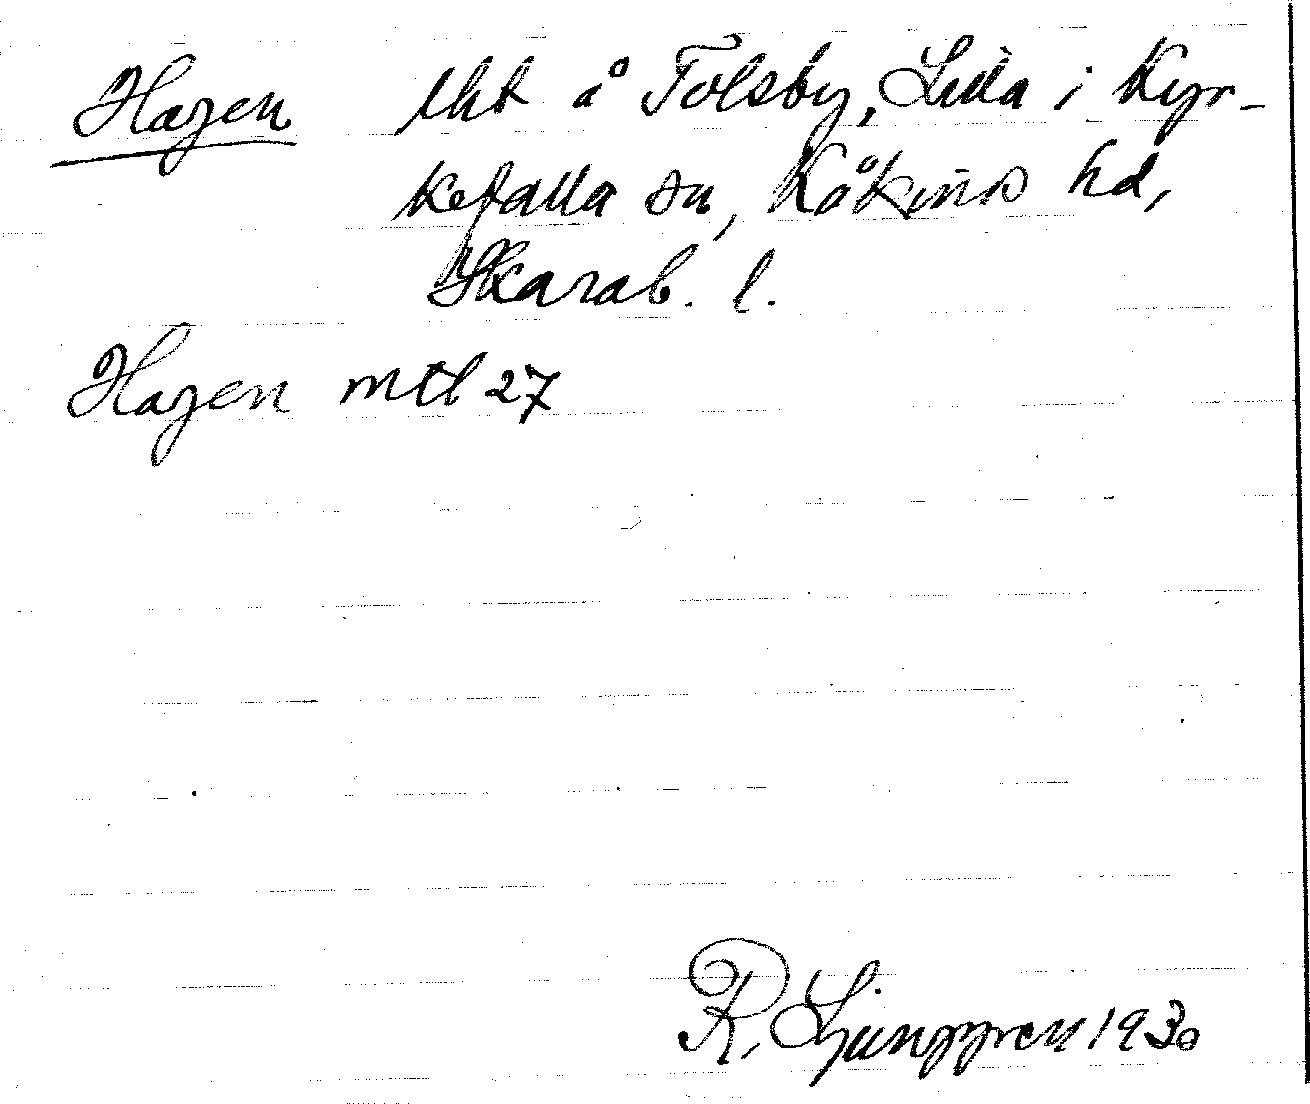 Hagen lht å Tolsby, Lilla i Kyr-
kefalla sn, Kåkinds hd,
Skarab. l.
Hagen mtl 27
R. Ljunggren 1930